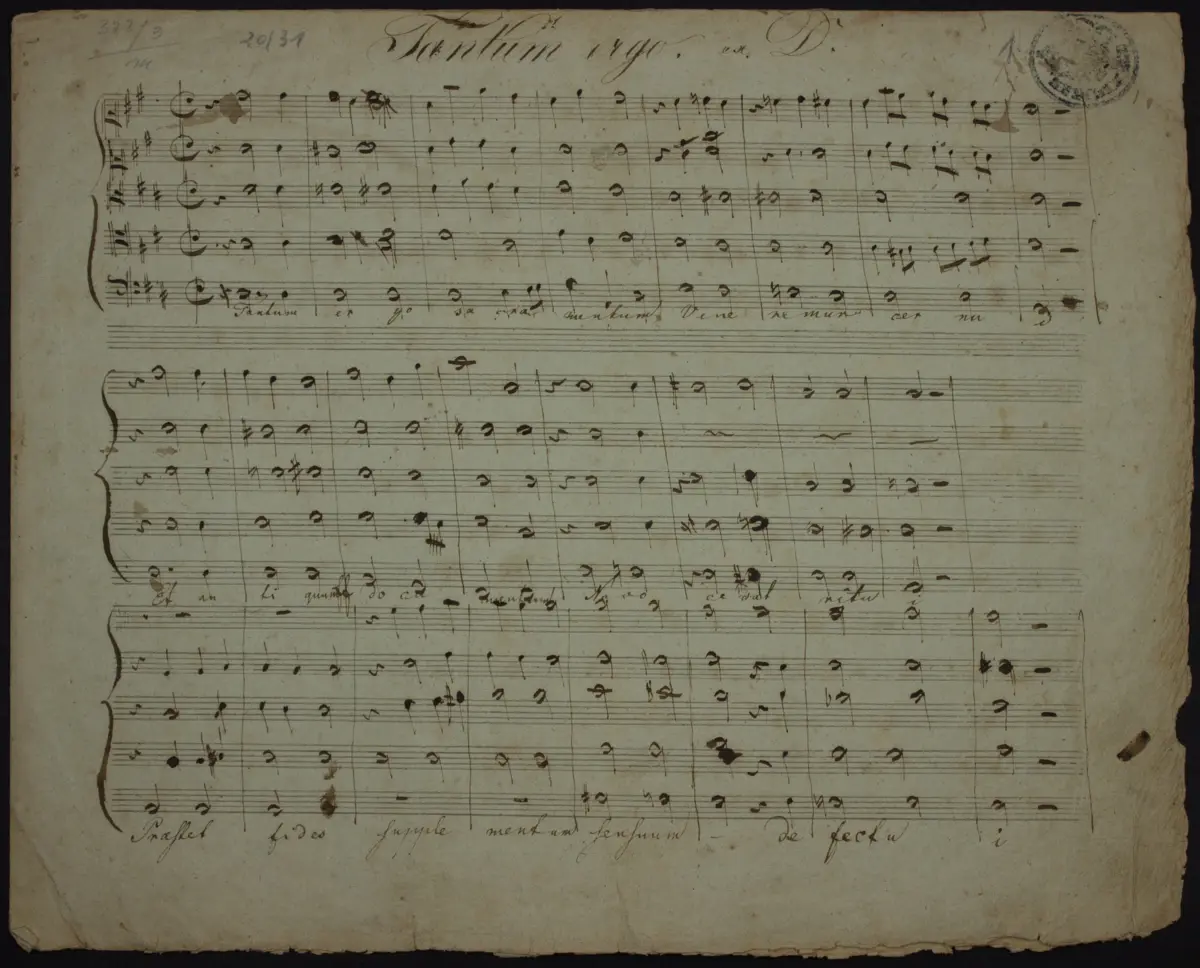 Tantum ergo. ex. D.
20/31
Tantum er go sa cra mentum Vene re mur cer nu i
Et an ti quum do cu mentum No vo ce dat ritu i
Præstet fides supple mentum sensuum - de fectu i